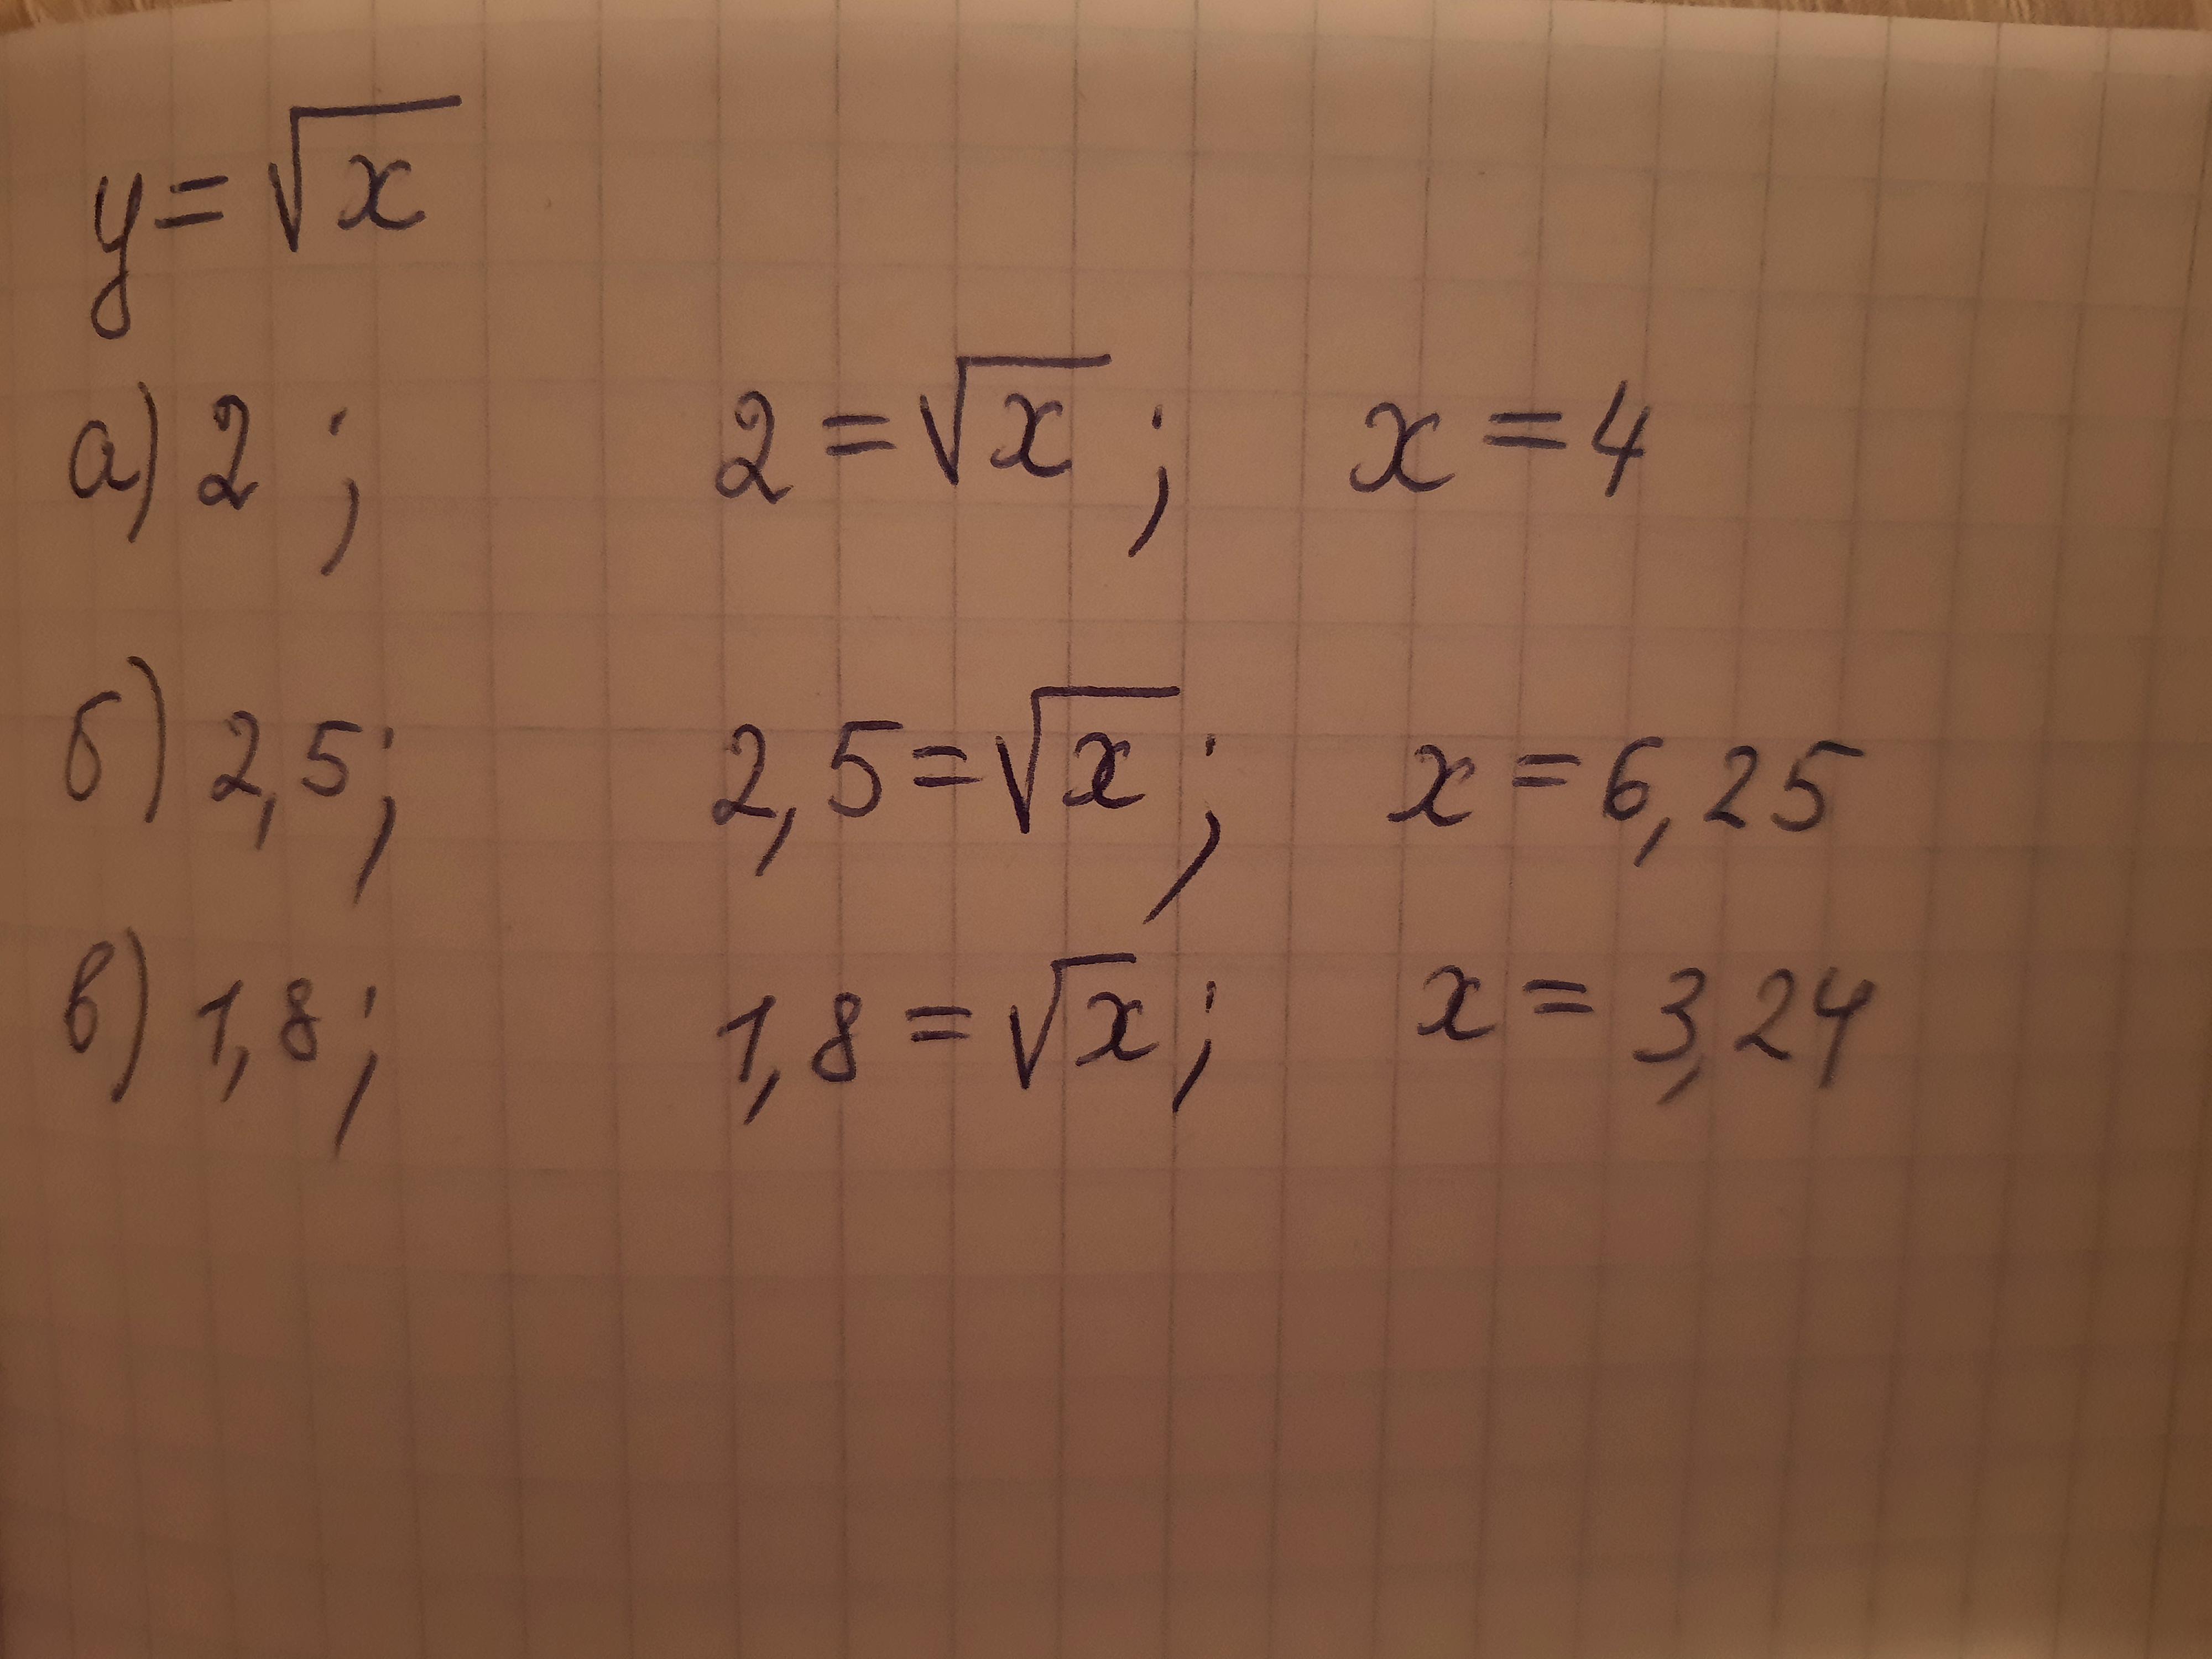 y = √x
а) 2 ; 2 = √x ; x = 4
б) 2,5; 2,5 = √x ; x = 6,25
в) 1,8; 1,8 = √x ; x = 3,24